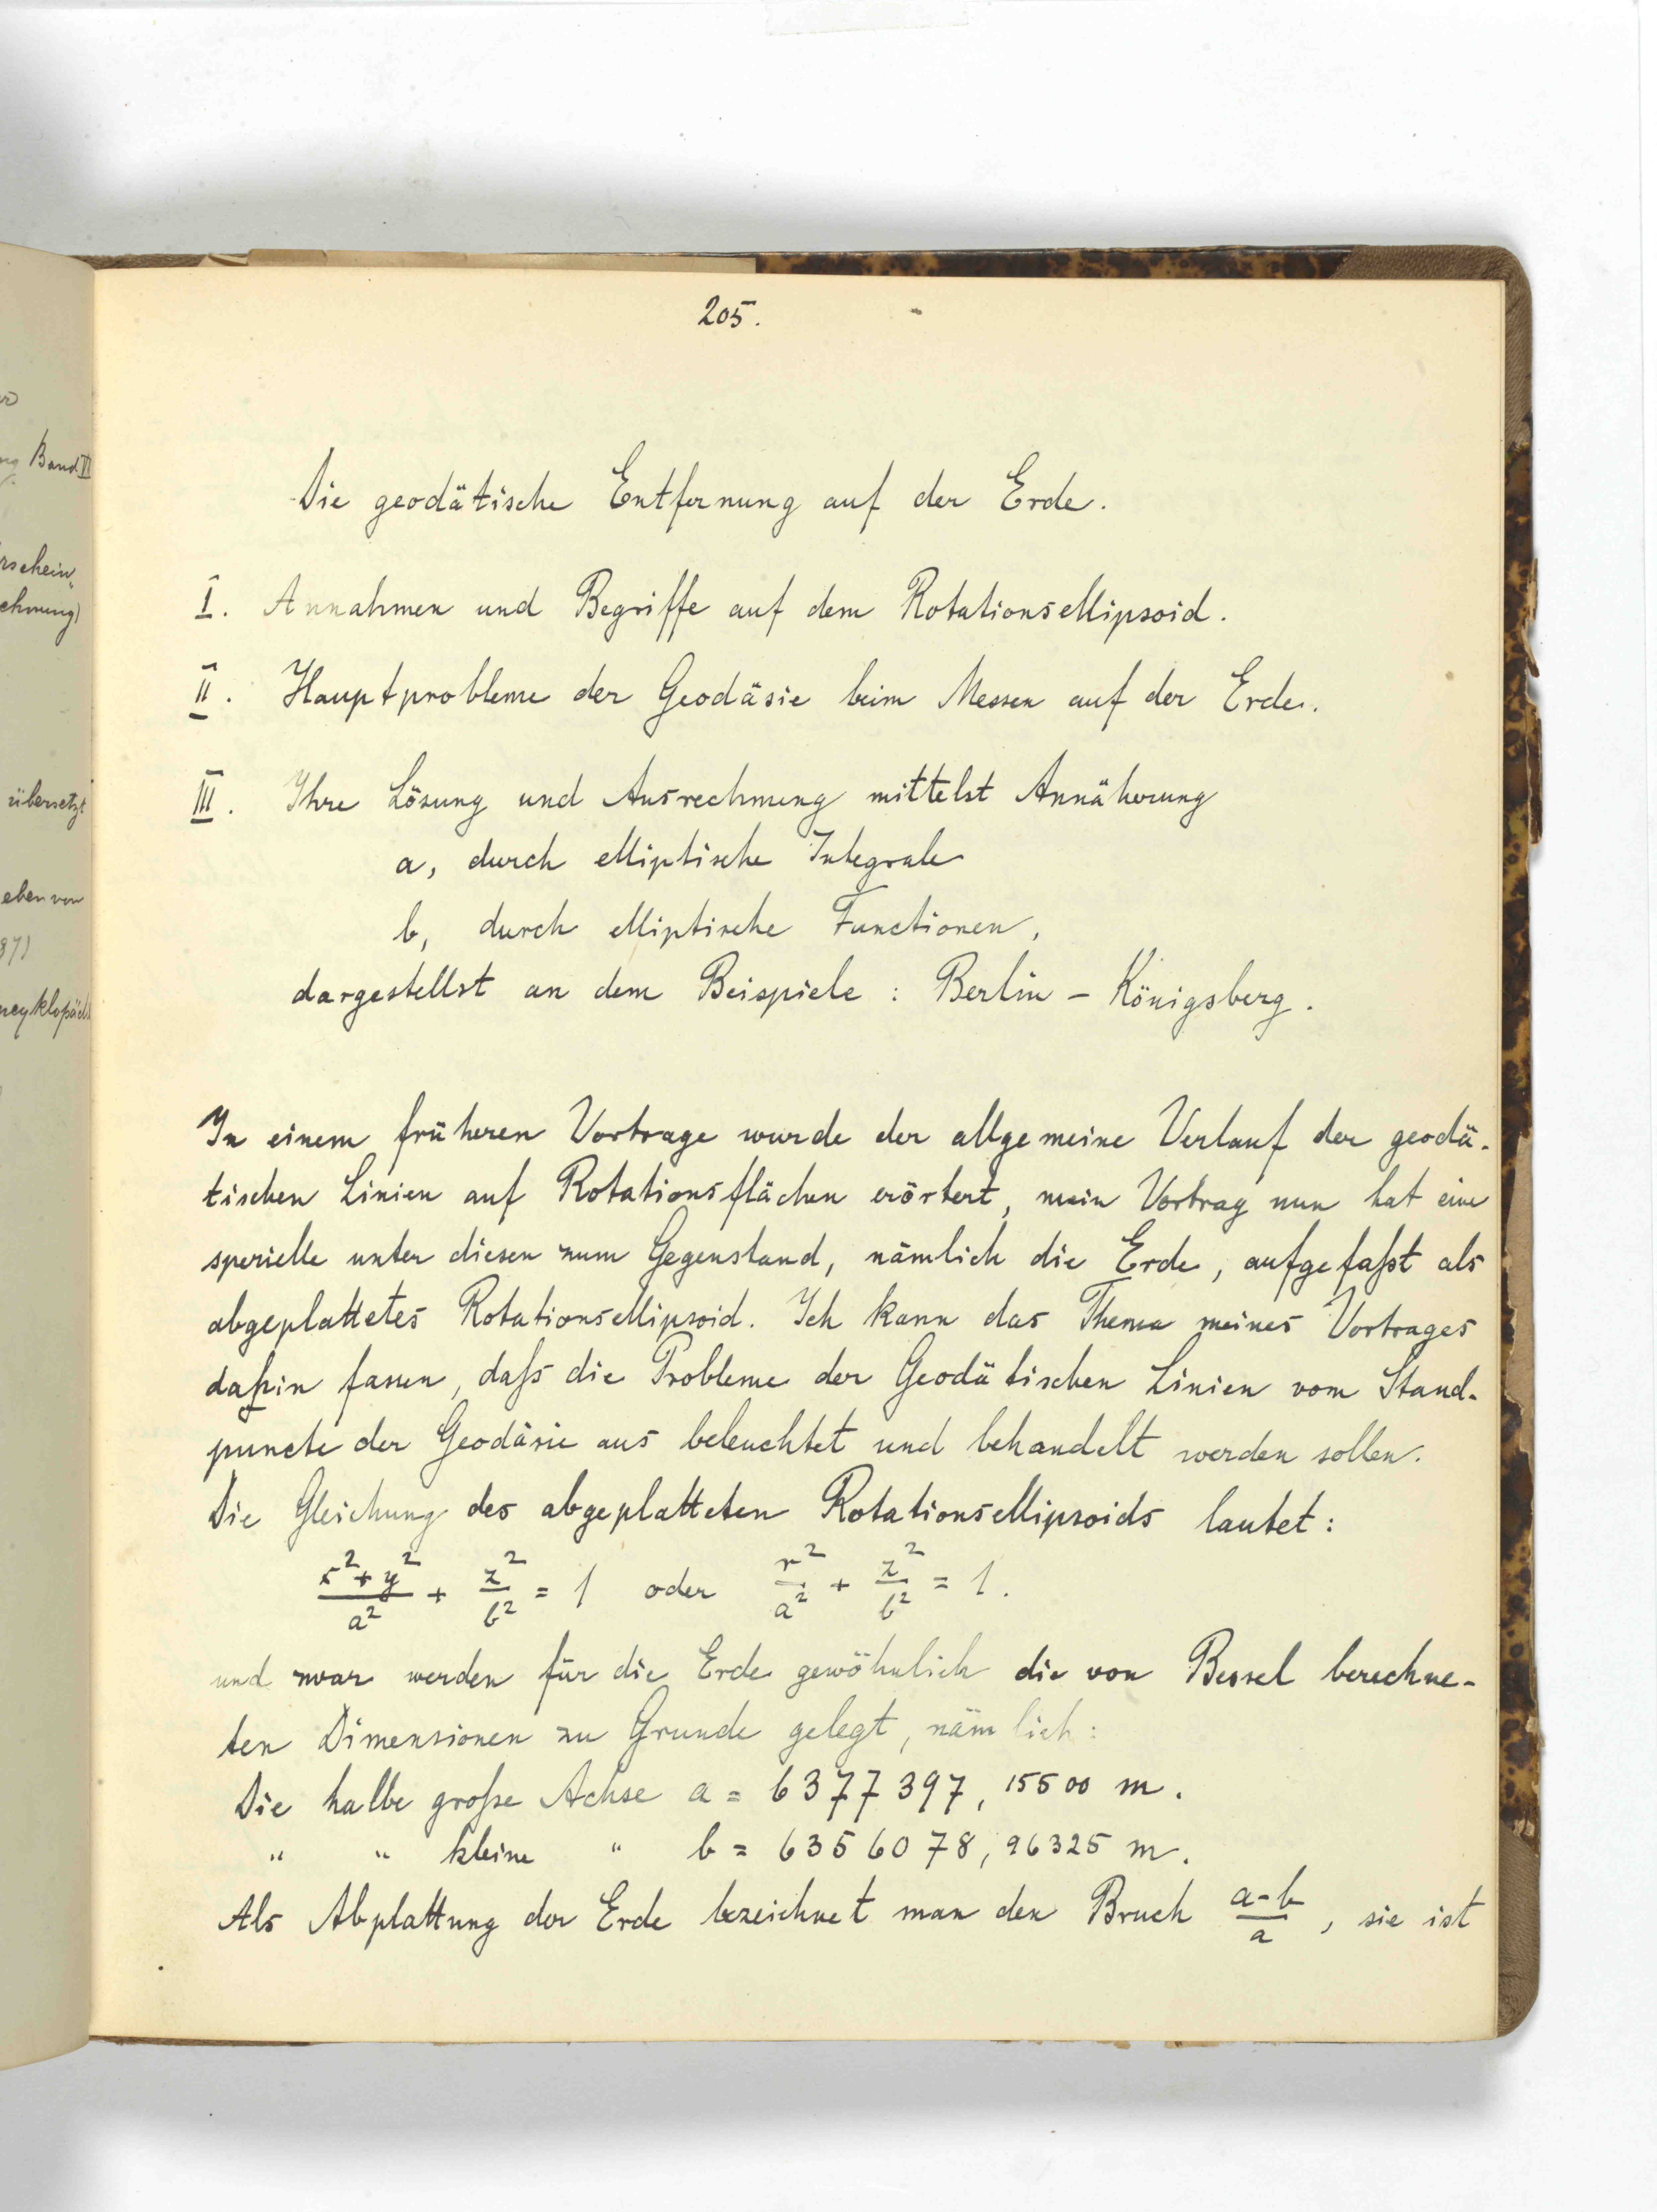 205.
Die geodätische Entfernung auf der Erde.
I. Annahmen und Begriffe auf dem Rotationsellipsoid.
II. Hauptprobleme der Geodäsie beim Messen auf der Erde.
III. Ihre Lösung und Ausrechnung mittelst Annäherung
a, durch elliptische Integrale
b, durch elliptische Functionen,
dargestellst an dem Beispiele : Berlin - Königsberg.
In einem früheren Vortrage wurde der allgemeine Verlauf der geodä-
tischen Linien auf Rotationsflächen erörtert, mein Vortrag nun hat eine
spezielle unter diesen zum Gegenstand, nämlich die Erde, aufgefaßt als
abgeplattetes Rotationsellipsoid. Ich kann das Thema meines Vortrages
dahin fassen, daß die Probleme der Geodätischen Linien vom Stand-
puncte der Geodäsie aus beleuchtet und behandelt werden sollen.
Die Gleichung des abgeplatteten Rotationsellipsoids lautet:
(x²+y²)/a² + z²/b² = 1 oder r²/a² + z²/b² = 1.
und zwar werden für die Erde gewöhnlich die von Bessel berechne-
ten Dimensionen zu Grunde gelegt, nämlich:
Die halbe große Achse a = 6377397,15500 m.
" " kleine " b = 6356078,96325 m.
Als Abplattung der Erde bezeichnet man den Bruch (a-b)/a, sie ist
Band VI
übersetzt
eben von